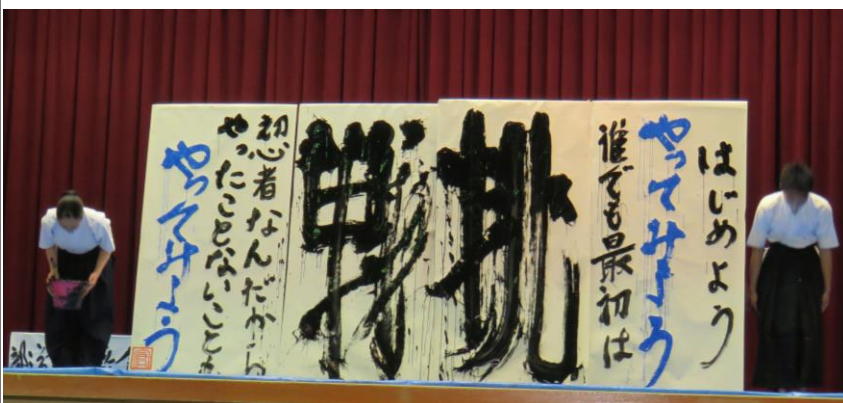 はじめよう
やってみよう
誰でも最初は
挑戦
初心者なんだから
やったことないことも
やってみよう